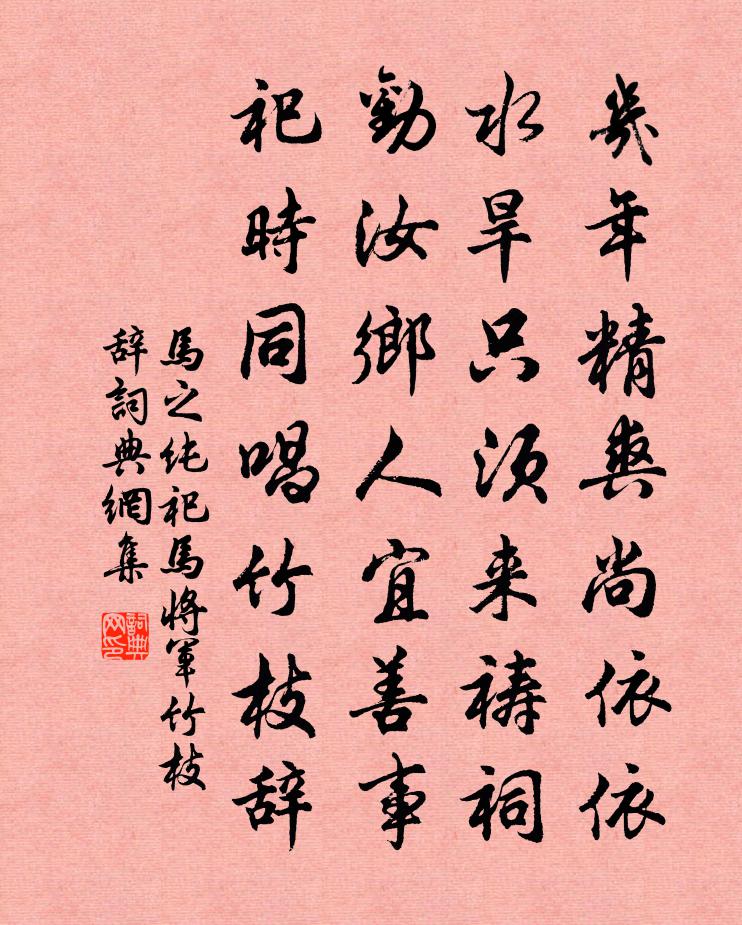 幾年精爽尚依依
水旱只須来禱祠
勸汝鄉人宜善事
祀時同唱竹枝辞
馬之純祀馬將軍竹枝
辞詞典網集
詞典
网印